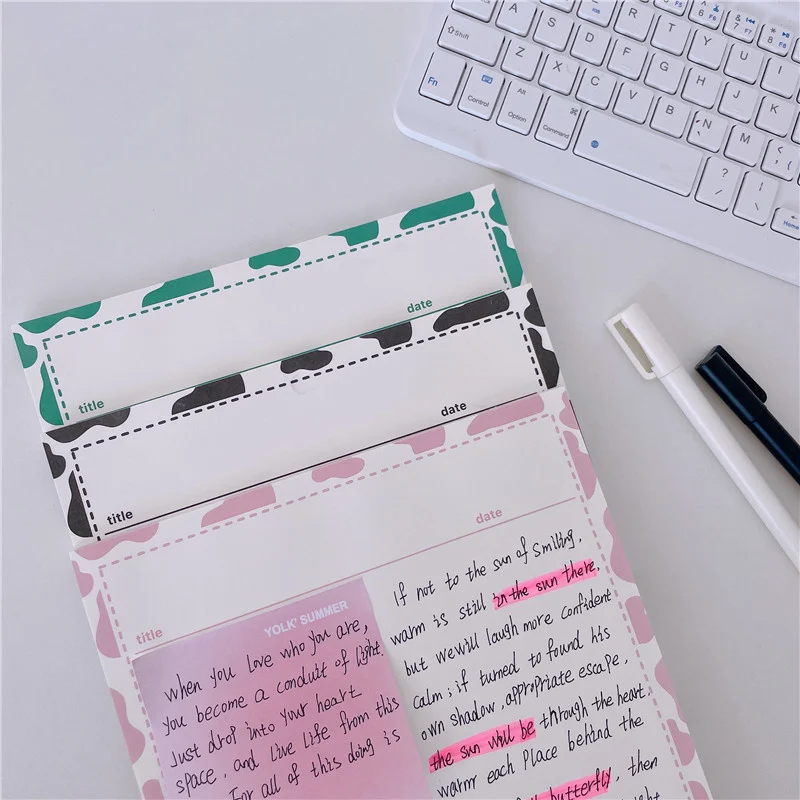 Shift
Fn
Control
Alt
Option
Command
A
S
D
F
G
H
J
K
Z
X
C
V
B
N
M
R
T
Y
U
I
F5
F6
F7
F8
Home
date
title
date
title
date
title
YOLK' SUMMER
when you love who you are,
you become a conduit of light
Just drop into your heart
space, and live life from this
For all of this doing is
If not to the sun of smiling,
warm is still in the sun there,
but we will laugh more confident
calm ; if turned to found his
own shadow, appropriate escape,
the sun will be through the heart,
warm each place behind the
butterfly, then